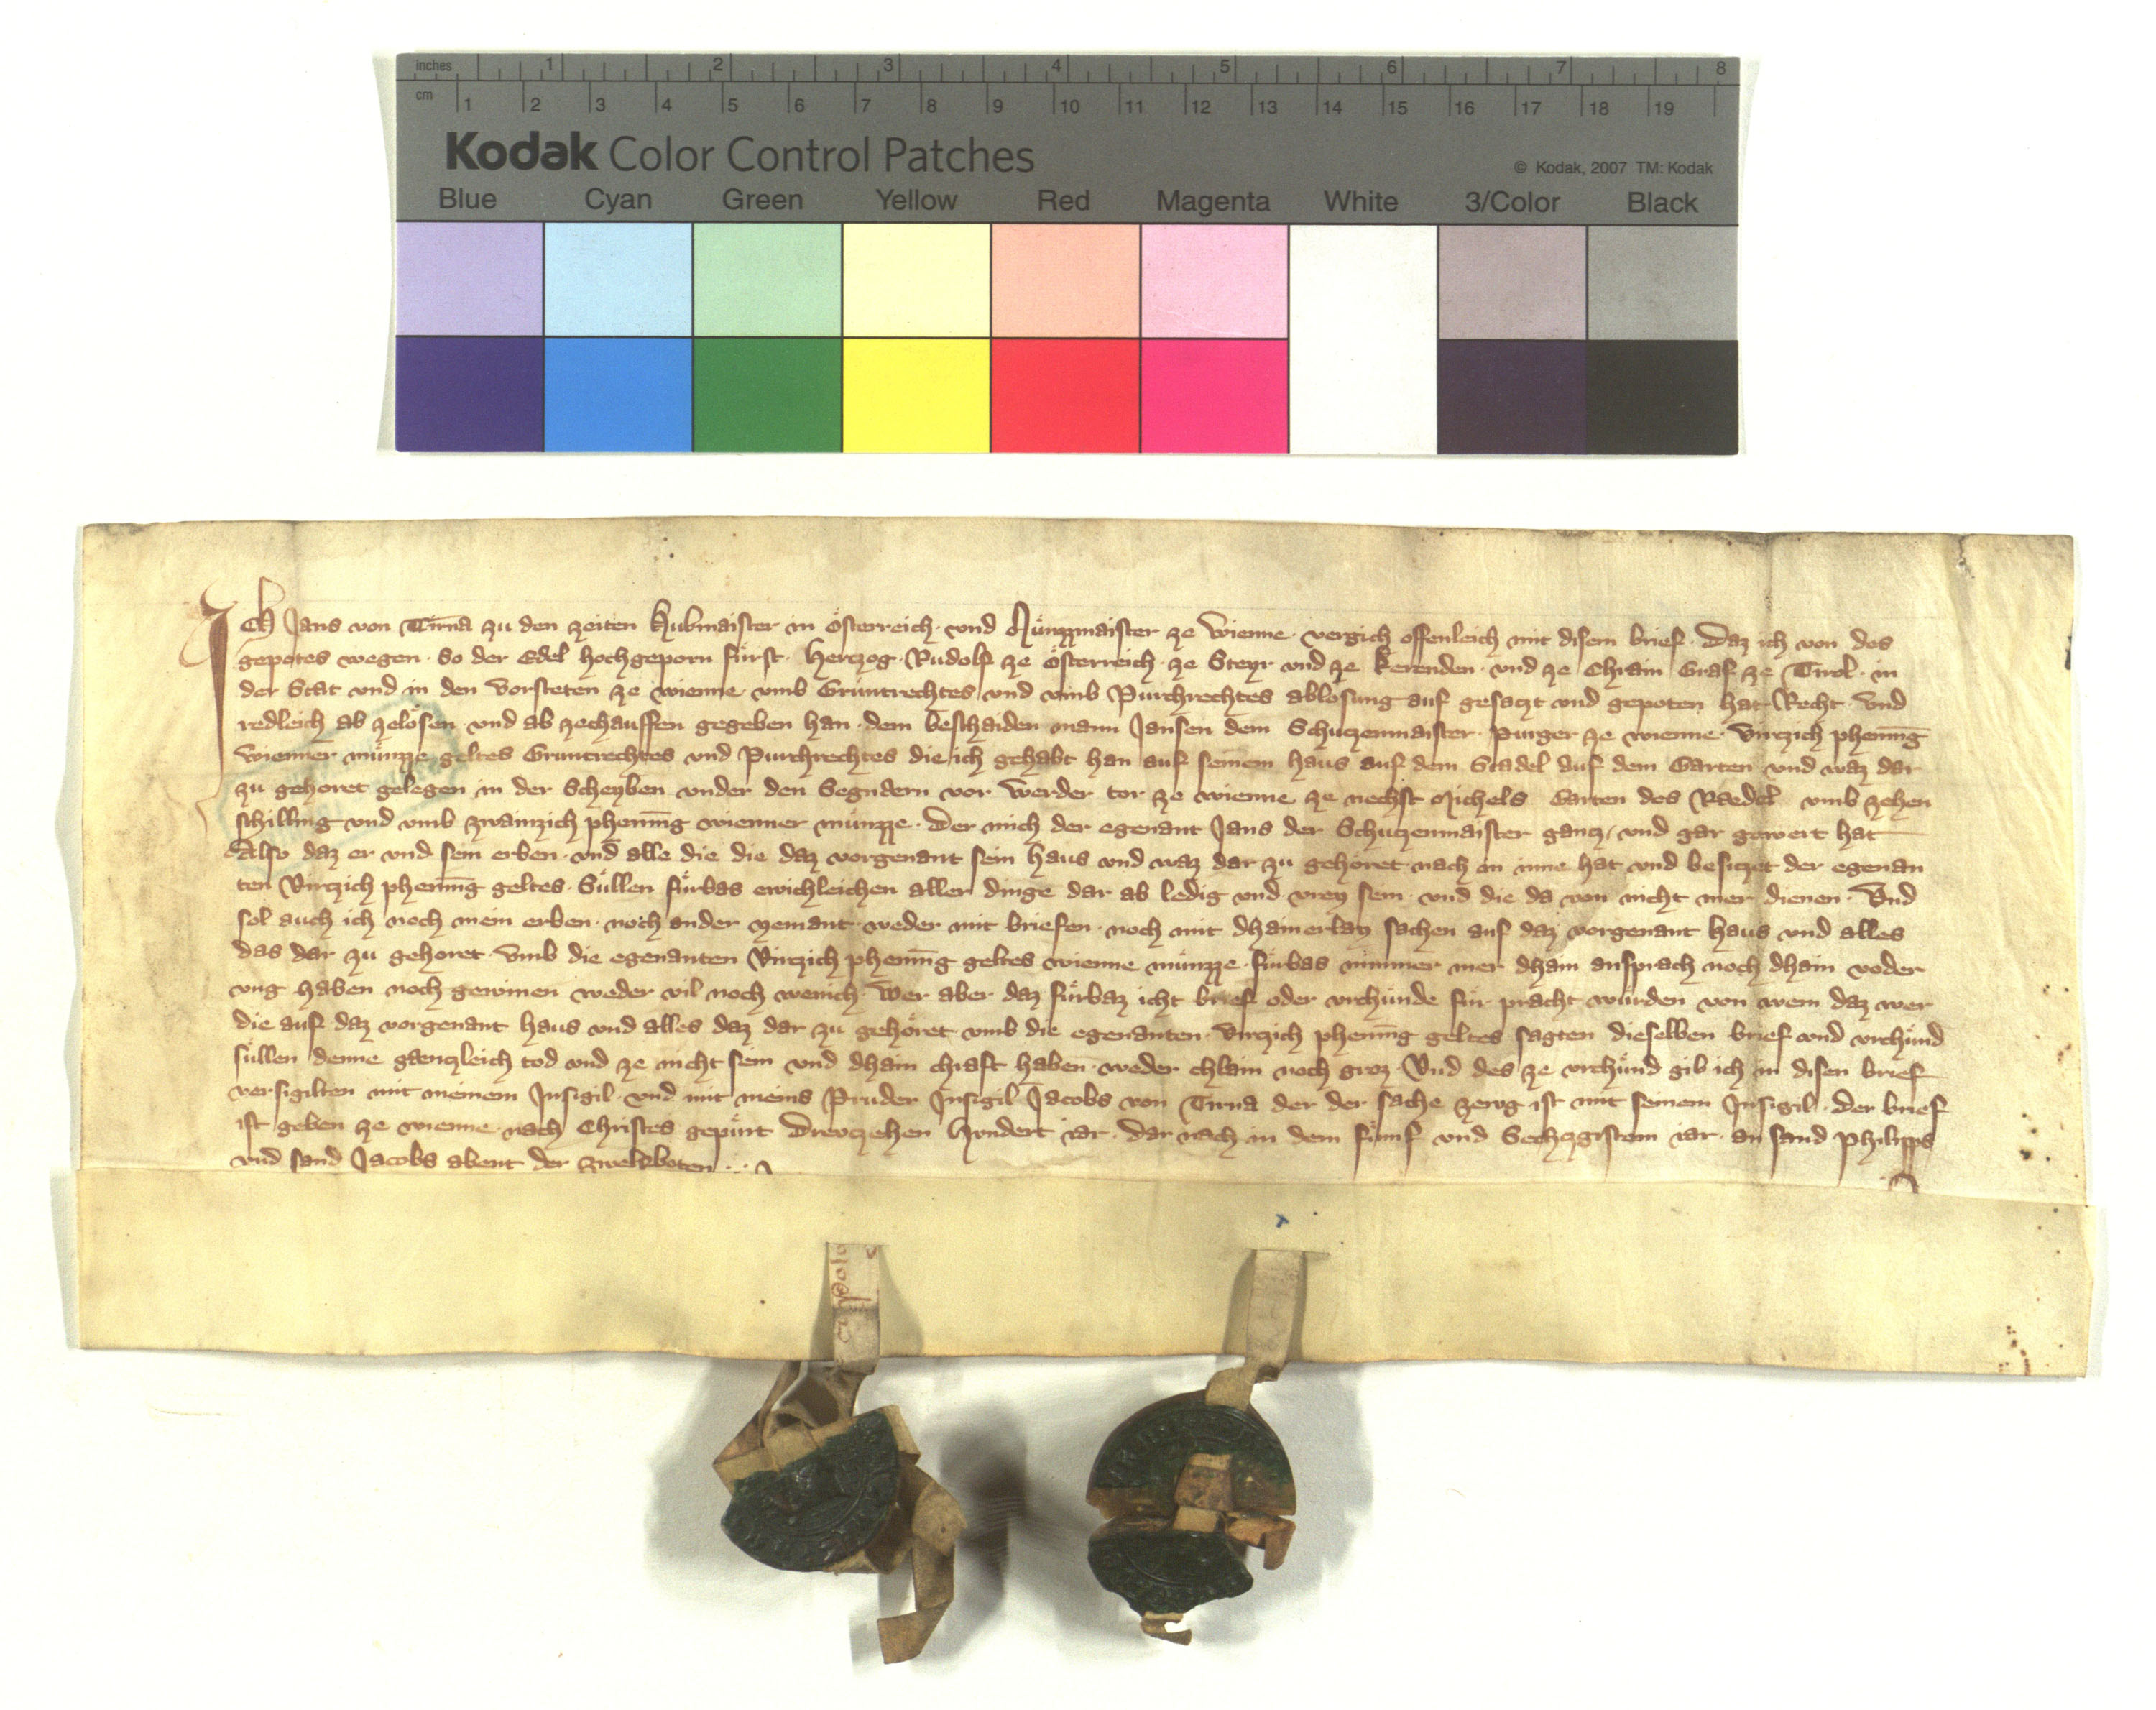 inches 1 2 3 4 5 6 7 8
cm 1 2 3 4 5 6 7 8 9 10 11 12 13 14 15 16 17 18 19
Kodak Color Control Patches
© Kodak, 2007 TM: Kodak
Blue Cyan Green Yellow Red Magenta White 3/Color Black
ICh Jans von Tirna zu den zeiten Hubmaister in Österreich · vnd Münzzmaister ze Wienne · vergich offenleich mit disem brief · Daz ich von des
gepotes wegen · So der Edel hochgeporn fürst · Hertzog · Rudolf ze Österreich · ze Steyr vnd ze Kernden · vnd ze Chrain Graf ze Tirol · in
der Stat vnd in den vorsteten ze wienne vmb Gruntrechtes vnd vmb Purchrechtes ablosung auf gesaczt vnd gepoten hat Recht · vnd
redleich ab zelösen vnd ab zechauffen gegeben han · dem beschaiden mann Jansen dem Schuczenmaister · purger ze wienne · Virczich phenning
wienner münzze geltes Gruntrechtes vnd Purchrechtes die ich gehabt han auf seinem haus auf dem Stadel auf dem Garten vnd waz dar
zu gehoret gelegen in der Scheyben vnder den Segndern vor Werder tor ze wienne ze nechst Michels Garten des Raedel vmb zehen
schilling vnd vmb zwainzich phenning wienner münzze · Der mich der egenant Jans der Schuczenmaister gancz · vnd gar gewert hat
Also daz er vnd sein erben · vnd alle die die daz vorgenant sein haus vnd waz dar zu gehöret nach in inne hat vnd besiczet der egenan
ten Virczich phenning geltes · Süllen fürbas ewichleichen aller dinge dar ab ledig vnd vrey sein · vnd die da von nicht mer dienen · Vnd
sol auch ich noch mein erben · noch ander yemant · weder mit briefen · noch mit dhainerlay sachen auf daz vorgenant haus vnd alles
das dar zu gehoret · vmb die egenanten Virczich phenning geltes wienne münzze · fürbas nimmer mer dham ansprach noch dhain voder
vng haben noch gewinen weder vil noch wenich · Wer aber daz fürbaz icht brief oder vrchünde für pracht würden von wem daz wer
die auf daz vorgenant haus vnd alles daz dar zu gehöret vmb die egenanten · virczich phenning geltes sagten dieselben brief vnd vrchünd
süllen denne gaenczleich tod vnd ze nicht sein vnd dhain chraft haben · weder chlain noch groz · Vnd des ze vrchünd gib ich in disen brief
versigilten mit meinem Insigil · vnd mit meins Pruder Insigil Jacobs von Tirna der der sache zewg ist mit seinem Insigil · Der brief
ist geben ze wienne · nach Christes gepürt Drewczehen Hvndert iar · dar nach in dem fümf vnd Sechczgistem iar · an sand philipps
vnd sand Jacobs abent der zwelfboten